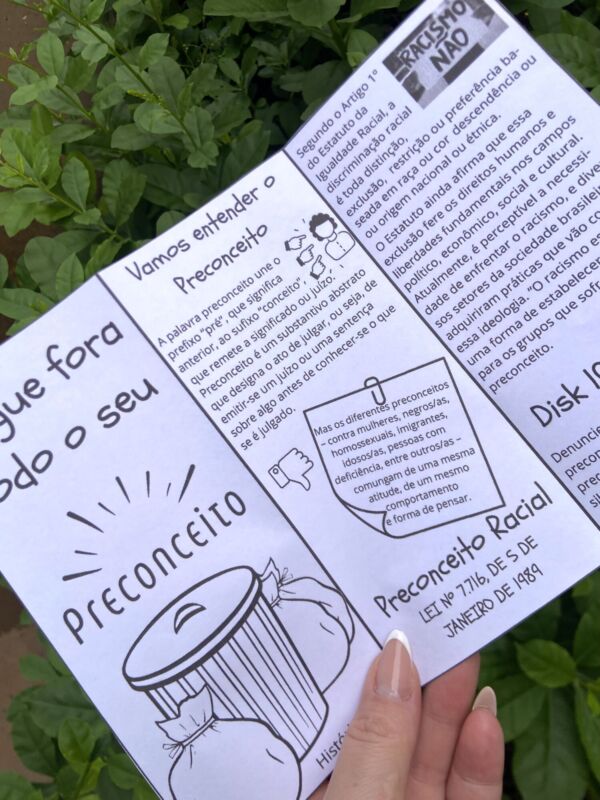 gue fora
odo o seu
PRECONCEITO
Vamos entender o
Preconceito
A palavra preconceito une o
prefixo "pré", que significa
anterior, ao sufixo "conceito",
que remete a significado ou juízo.
Preconceito é um substantivo abstrato
que designa o ato de julgar, ou seja, de
emitir-se um juízo ou uma sentença
sobre algo antes de conhecer-se o que
se é julgado.
Mas os diferentes preconceitos
– contra mulheres, negros/as,
homossexuais, imigrantes,
idosos/as, pessoas com
deficiência, entre outros/as –
comungam de uma mesma
atitude, de um mesmo
comportamento
e forma de pensar.
Preconceito Racial
LEI Nº 7.716, DE 5 DE
JANEIRO DE 1989
RACISMO
NÃO
Segundo o Artigo 1º
do Estatuto da
Igualdade Racial, a
discriminação racial
é toda distinção,
exclusão, restrição ou preferência ba-
seada em raça ou cor, descendência ou
ou origem nacional ou étnica.
O Estatuto ainda afirma que essa
exclusão fere os direitos humanos e
liberdades fundamentais nos campos
político, econômico, social e cultural.
Atualmente, é perceptível a necessi-
dade de enfrentar o racismo, e dive
sos setores da sociedade brasilei
adquiriram práticas que vão co
essa ideologia. "O racismo es
uma forma de estabelece
para os grupos que sof
preconceito.
Disk 10
Denuncie
preco
prec
sil